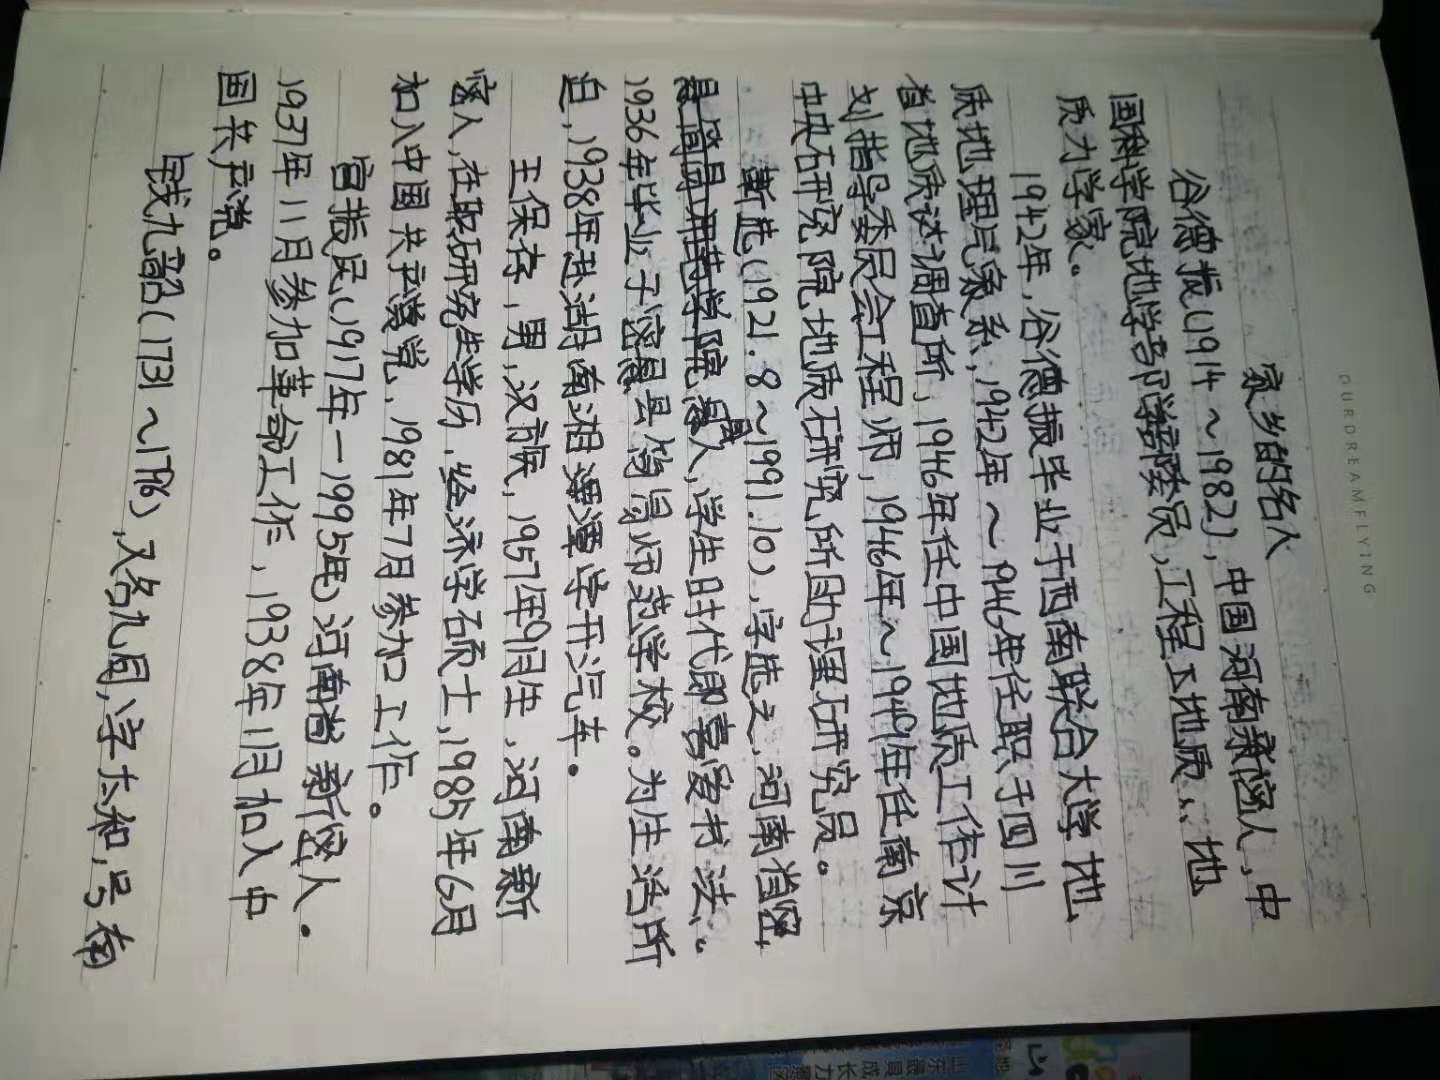 OURDREAMFLYING
家乡的名人
谷德振(1914~1982),中国河南新密人,中
国科学院地学部学部委员,工程地质、地
质力学家。
1942年,谷德振毕业于西南联合大学地
质地理气象系,1942年~1946年任职于四川
省地质调查所,1946年任中国地质工作计
划指导委员会工程师,1946年~1949年任南京
中央研究院地质研究所助理研究员。
靳选(1921.8~1991.10),字选之,河南省密
县人,学生时代即喜爱书法、。
1936年毕业于密县简易师范学校。为生活所
迫,1938年赴湖南湘潭学开汽车。
王保存,男,汉族,1957年9月生,河南新
密人,在职研究生学历,经济学硕士,1985年6月
加入中国共产党,1981年7月参加工作。
宫振民(1917年—1995年)河南省新密人。
1937年11月参加革命工作,1938年1月加入中
国共产党。
钱九韶(1731~1796),又名九同,字太和,号南